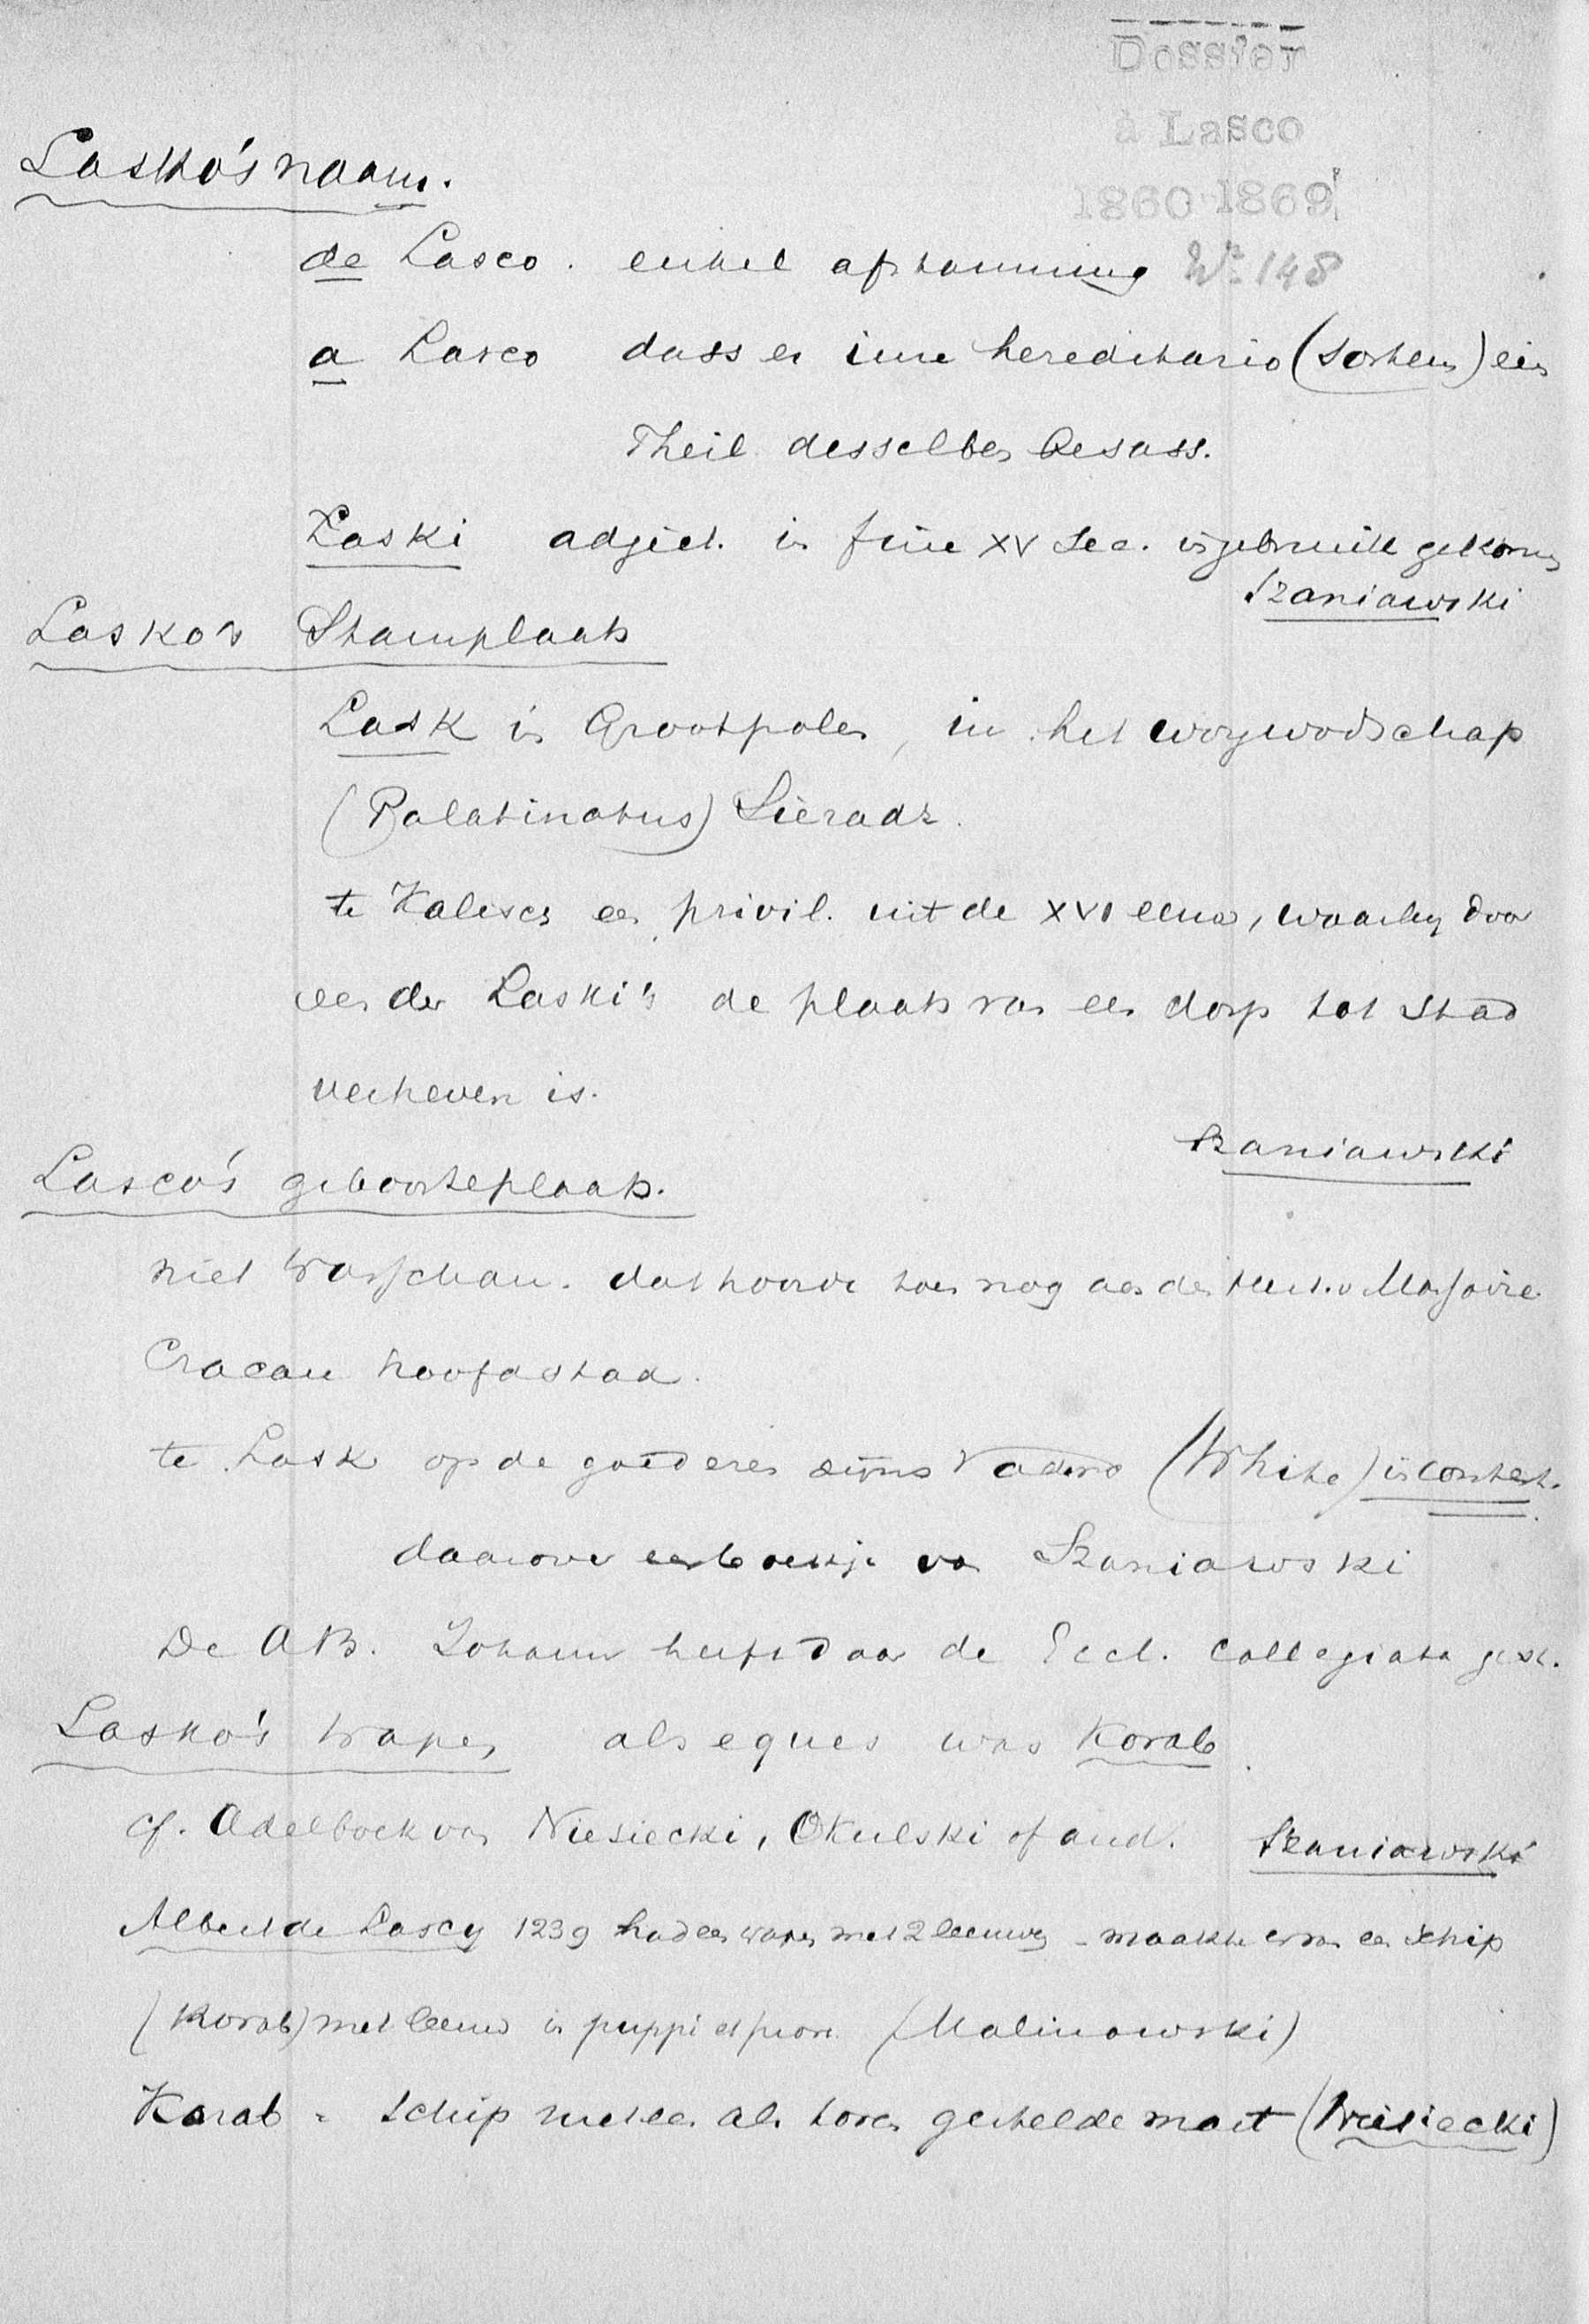 Dossier
à Lasco
1860-1869
No 148
Lasko's naam.
de Lasco. enkel afstamming
a Lasco dass er iure hereditario (sortem) ein
Theil desselben besass.
Laski adject. in fine XV Sec. in gebruik gekomen
Szaniawski
Lasko's Stamplaats
Lask in Grootpolen, in het woywodschap
(Palatinatus) Sieradz.
te Kalisch een privil. uit de XVI eeuw, waarbij door
een der Laski's de plaats van een dorp tot stad
verheven is.
Szaniawski
Lasco's geboorteplaats.
niet Warschau. dat hoorde toen nog aan den Hert. v Masovie
Cracau hoofdstad.
te Lask op de goederen zijns Vaders (White) is contest.
daarover een boekje van Szaniawski
De AB. Johann heeft daar de Eccl. Collegiata gest.
Lasko's wapen als eques was Korab.
cf. Adelboek van Niesiecki, Okulski of and. Szaniawski
Albert de Lascy 1239 had een wapen met 2 leeuwen - maakte ervan een schip
(Korab) met leeuw in puppi et prora (Malinowski)
Korab = Schip met een als toren gestelde mast (Niesiecki)